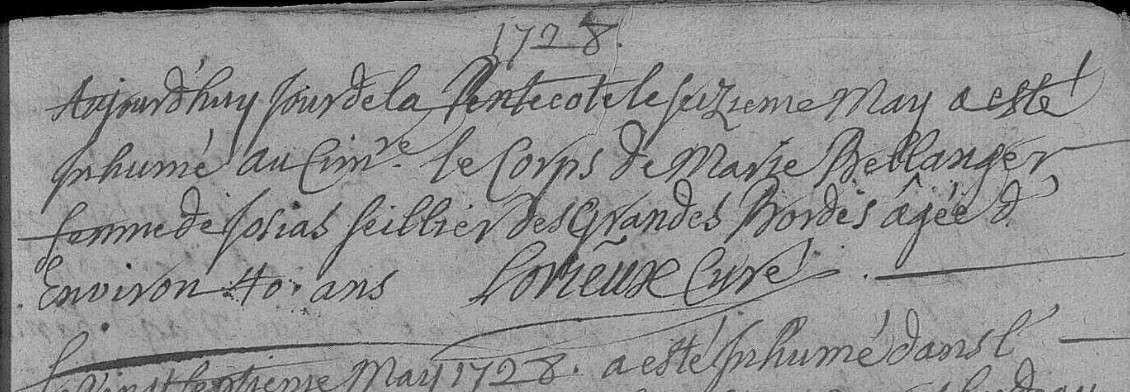 1728.
Aujourd'huy Jour de la Pentecote le seizieme May a esté
Inhumé au Cim.re le Corps de Marie Bellanger
femme de Josias Seillier des Grandes Bordes âgée d'
Environ 40. ans Lorieux Curé
Le Vingt septieme May 1728. a esté Inhumé dans l'